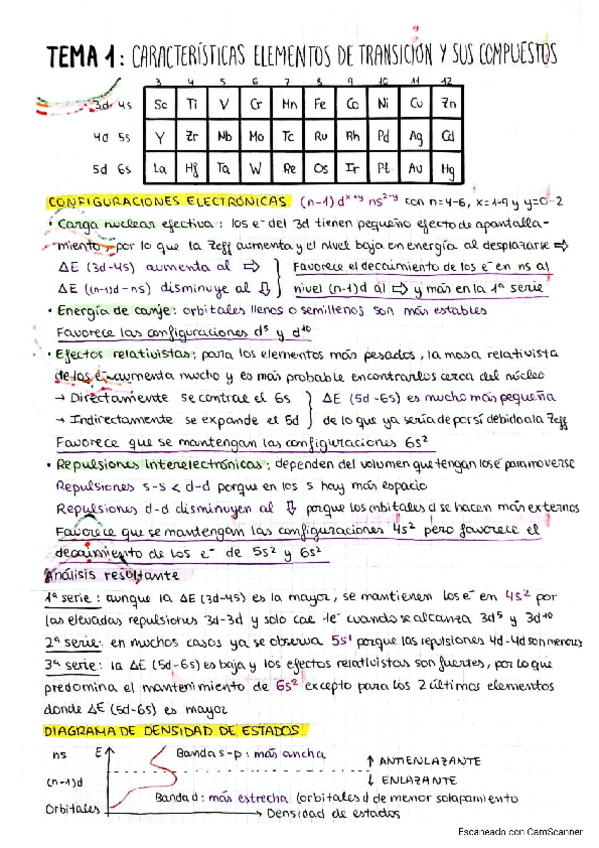 TEMA 1: CARACTERÍSTICAS ELEMENTOS DE TRANSICIÓN Y SUS COMPUESTOS
3 4 5 6 7 8 9 10 11 12
3d 4s Sc Ti V Cr Mn Fe Co Ni Cu Zn
4d 5s Y Zr Nb Mo Tc Ru Rh Pd Ag Cd
5d 6s La Hf Ta W Re Os Ir Pt Au Hg
CONFIGURACIONES ELECTRÓNICAS (n-1)d^x+y ns^2-y con n=4-6, x=1-9 y y=0-2
• Carga nuclear efectiva: los e⁻ del 3d tienen pequeño efecto de apantalla-
miento, por lo que la Zeff aumenta y el nivel baja en energía al desplazarse ⇨
ΔE (3d-4s) aumenta al ⇨ } Favorece el decaimiento de los e⁻ en ns al
ΔE ((n-1)d-ns) disminuye al ⇩ } nivel (n-1)d al ⇨ y más en la 1ª serie
• Energía de canje: orbitales llenos o semillenos son más estables
Favorece las configuraciones d⁵ y d¹⁰
• Efectos relativistas: para los elementos más pesados, la masa relativista
de los e⁻ aumenta mucho y es más probable encontrarlos cerca del núcleo
→ Directamente se contrae el 6s } ΔE (5d-6s) es mucho más pequeña
→ Indirectamente se expande el 5d } de lo que ya sería de por sí debido a la Zeff
Favorece que se mantengan las configuraciones 6s²
• Repulsiones interelectrónicas: dependen del volumen que tengan los e⁻ para moverse
Repulsiones s-s < d-d porque en los s hay más espacio
Repulsiones d-d disminuyen al ⇩ porque los orbitales d se hacen más externos
Favorece que se mantengan las configuraciones 4s² pero favorece el
decaimiento de los e⁻ de 5s² y 6s²
Análisis resultante
1ª serie: aunque la ΔE (3d-4s) es la mayor, se mantienen los e⁻ en 4s² por
las elevadas repulsiones 3d-3d y solo cae 1e⁻ cuando se alcanza 3d⁵ y 3d¹⁰
2ª serie: en muchos casos ya se observa 5s¹ porque las repulsiones 4d-4d son menores
3ª serie: la ΔE (5d-6s) es baja y los efectos relativistas son fuertes, por lo que
predomina el mantenimiento de 6s² excepto para los 2 últimos elementos
donde ΔE (5d-6s) es mayor
DIAGRAMA DE DENSIDAD DE ESTADOS
ns E Banda s-p: más ancha ↑ ANTIENLAZANTE
(n-1)d ↓ ENLAZANTE
Banda d: más estrecha (orbitales d de menor solapamiento
Orbitales → Densidad de estados
Escaneado con CamScanner